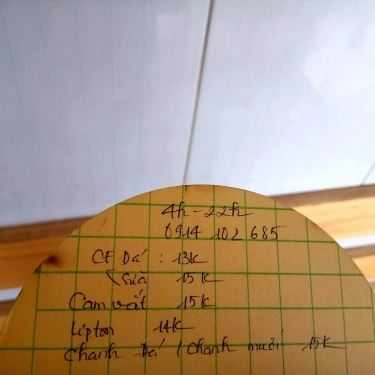 4h - 22h
0914 102 685
CF Đá : 13K
Sữa 15K
Cam vắt 15K
Lipton 14K
Chanh Đá / Chanh muối 15K